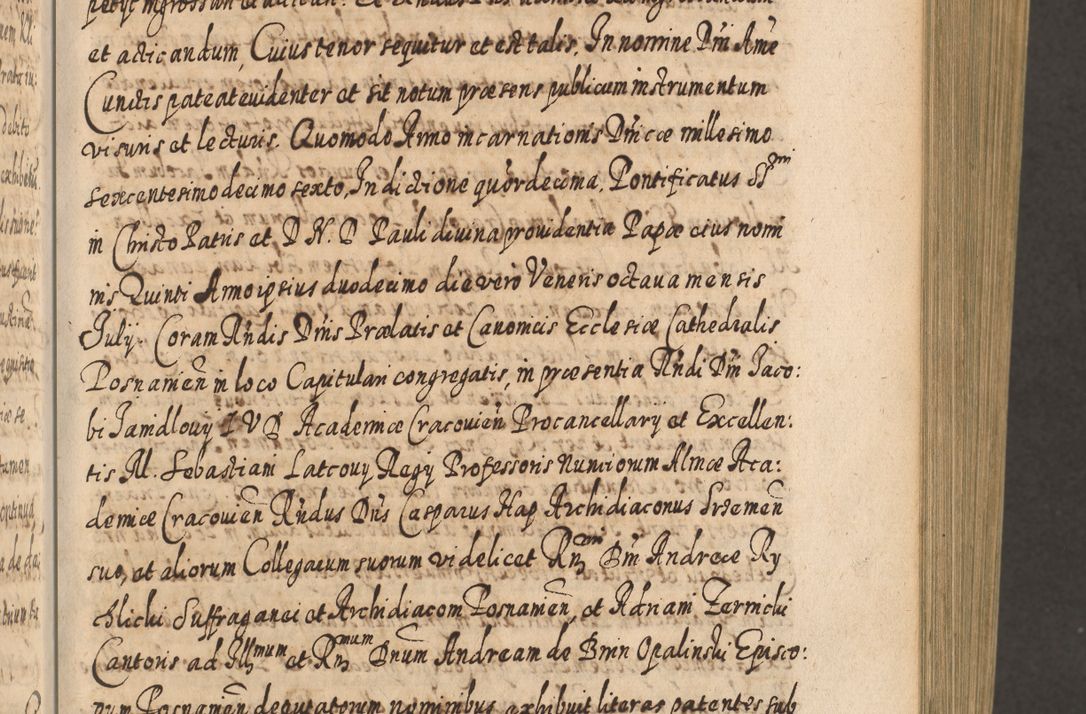 et acticandum, Cuius tenor sequitur et est talis. In nomine Dńi Ame
Cunctis pateat euidenter et sit notum præsens publicum instrumentum
visuris et lecturis. Quomodo Anno incarnationis Dńicæ millesimo
sexcentesimo decimo sexto, Indictione quordecima, Pontificatus Smi
in Christo Patris et D. N. D Pauli diuina prouidentia Papæ eius nomi
nis Quinti Anno ipsius duodecimo die vero Veneris octaua mensis
July. Coram Rńdis Dńis Prælatis et Canonicis Ecclesiæ Cathedralis
Posnanień in loco Capitulari congregatis, in præsentia Rńdi Dńi Jaco:
bi Janidlouy I V D Academiæ Cracouień Procancellary et Excellen:
tis M. Sebastiani Latcouy Regÿ Professoris Nunciorum Almæ Aca:
demiæ Cracouień Rńdus Dńs Casparus Hap Archidiaconus Sremen
suo, et aliorum Collegarum suorum videlicet Rmi Dńi Andreæ Ry
chlicki Suffraganei et Archidiaconi Posnanień, et Adriani Zernicki
Cantoris ad Illmum et Rmum Dnum Andream de Bnin Opalinski Episco:
pum Posnanień deputatorum nominibus exhibuit literas patentes sub